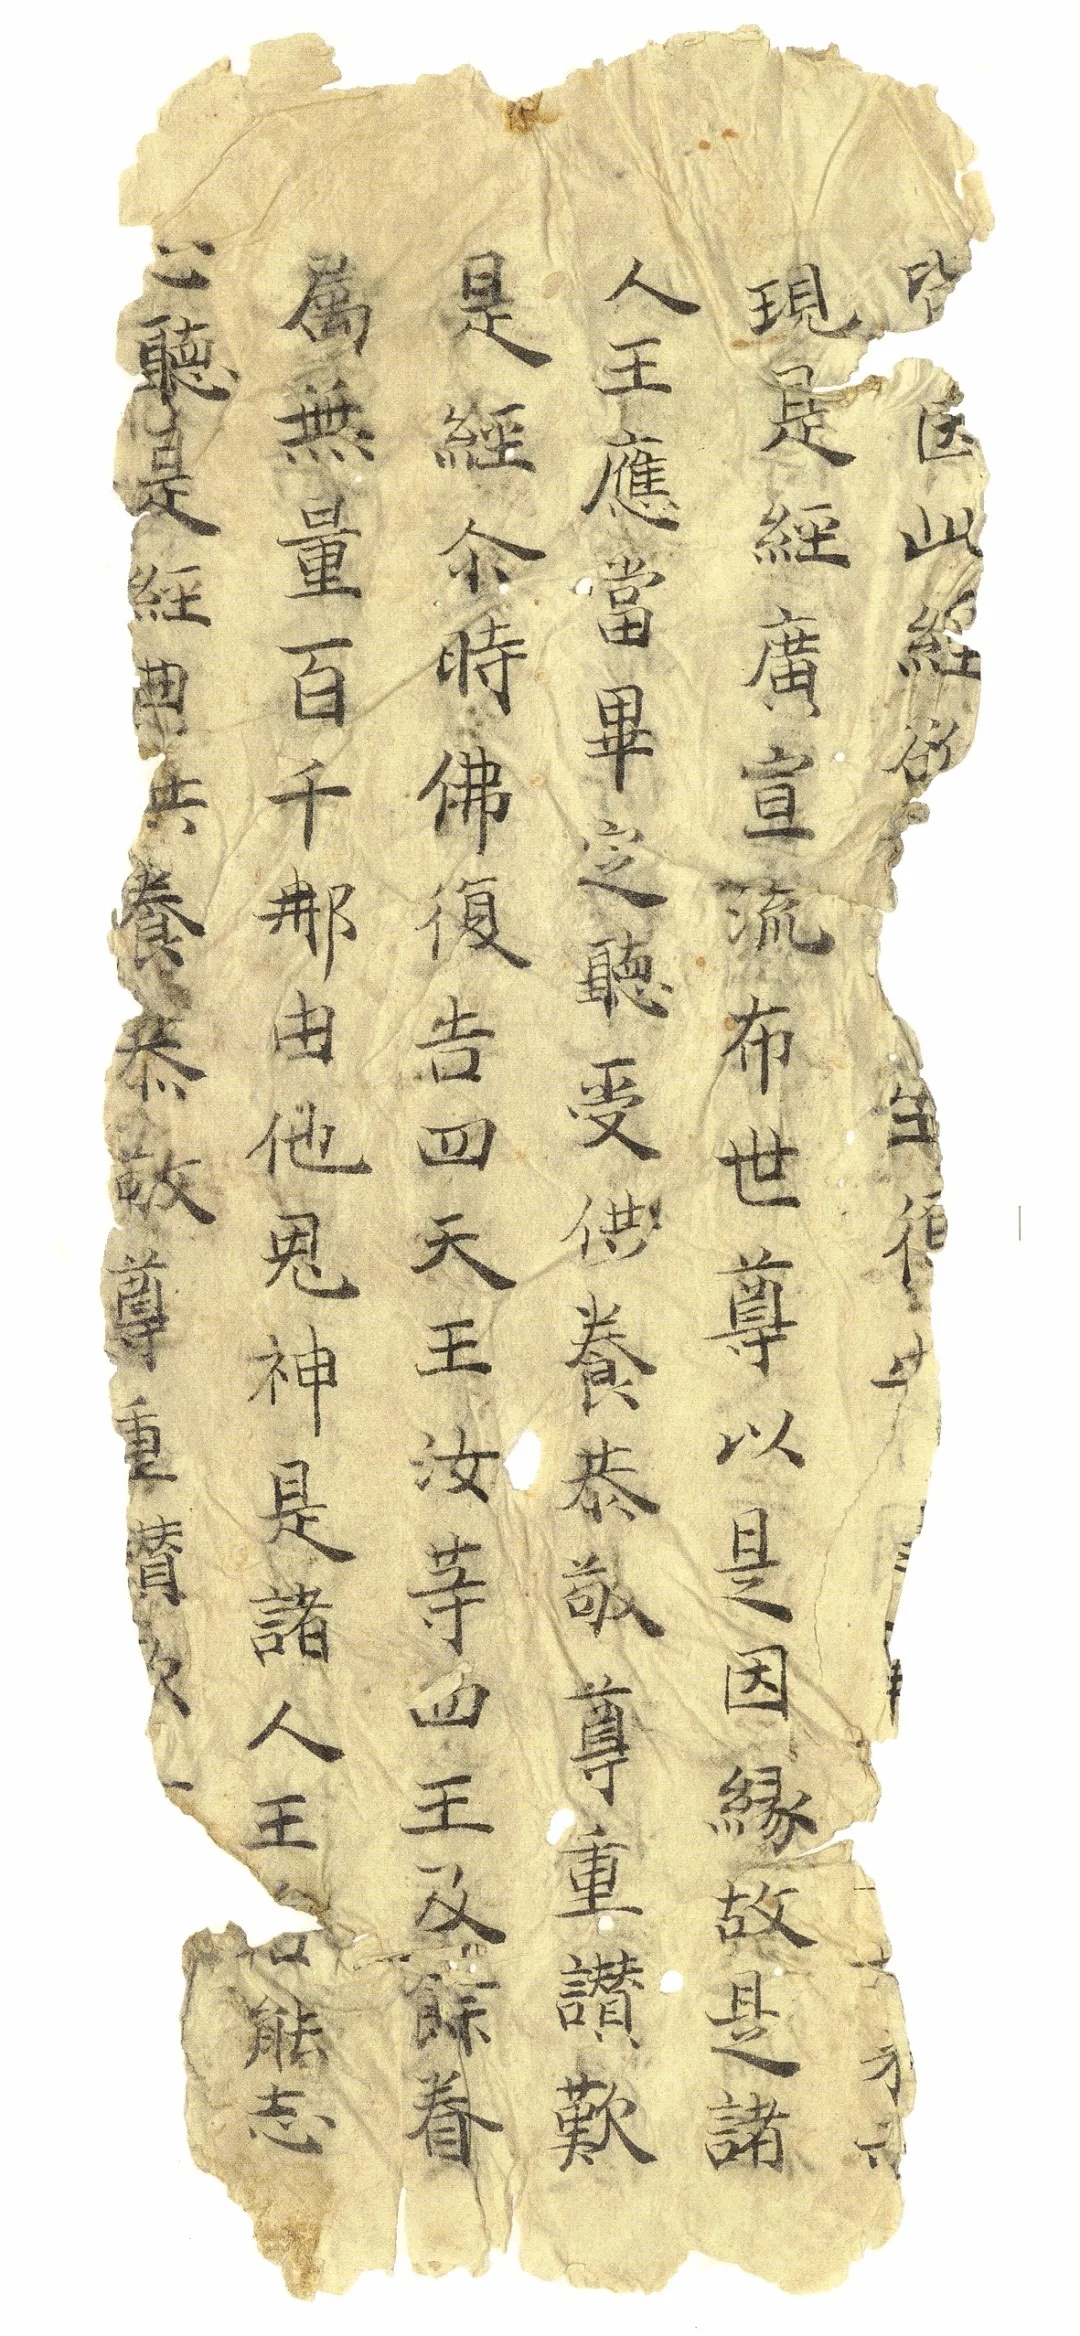 皆因此經欲生得安
現是經廣宣流布世尊以是因縁故是諸
人王應當畢定聽受供養恭敬尊重讃歎
是經尒時佛復告四天王汝等四王及餘眷
属無量百千那由他鬼神是諸人王若能志
心聽是經典供養恭敬尊重讃歎